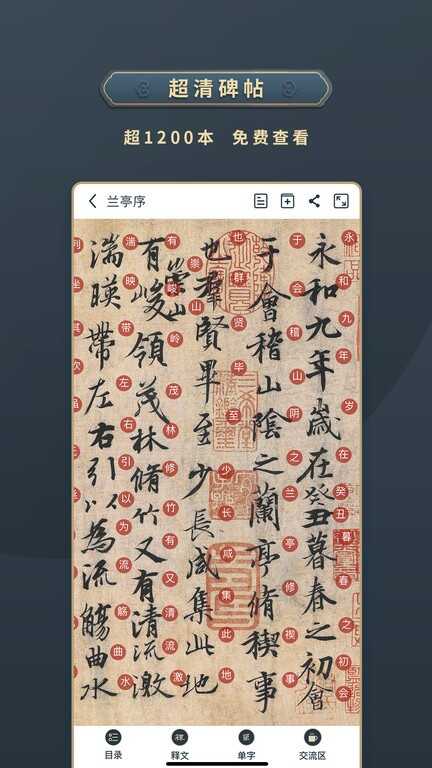 超清碑帖
超1200本 免费查看
兰亭序
永和九年歲在癸丑暮春之初會
永和九年岁在癸丑暮春之初会
于會稽山陰之蘭亭脩稧事
于会稽山阴之兰亭修禊事
也羣賢畢至少長咸集此地
也群贤毕至少长咸集此地
有崇山峻領茂林脩竹又有清流激
有崇山峻岭茂林修竹又有清流激
湍暎帶左右引以為流觴曲水
湍映带左右引以为流觞曲水
列坐其次
目录
释文
单字
交流区